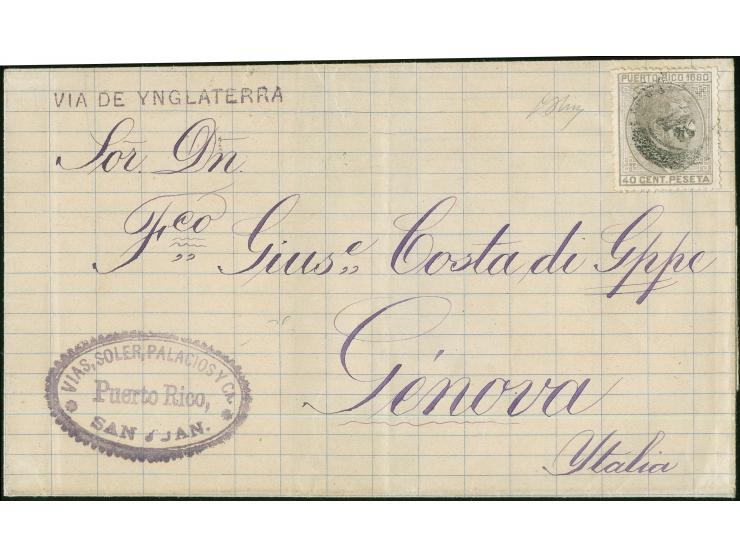 VIA DE YNGLATERRA
PUERTO RICO 1880
40 CENT. PESETA
Sor. Dn.
Fco Giuse. Costa di Gppe
Génova
Ytalia
VIAS, SOLER, PALACIOS Y CA.
Puerto Rico,
SAN JUAN.